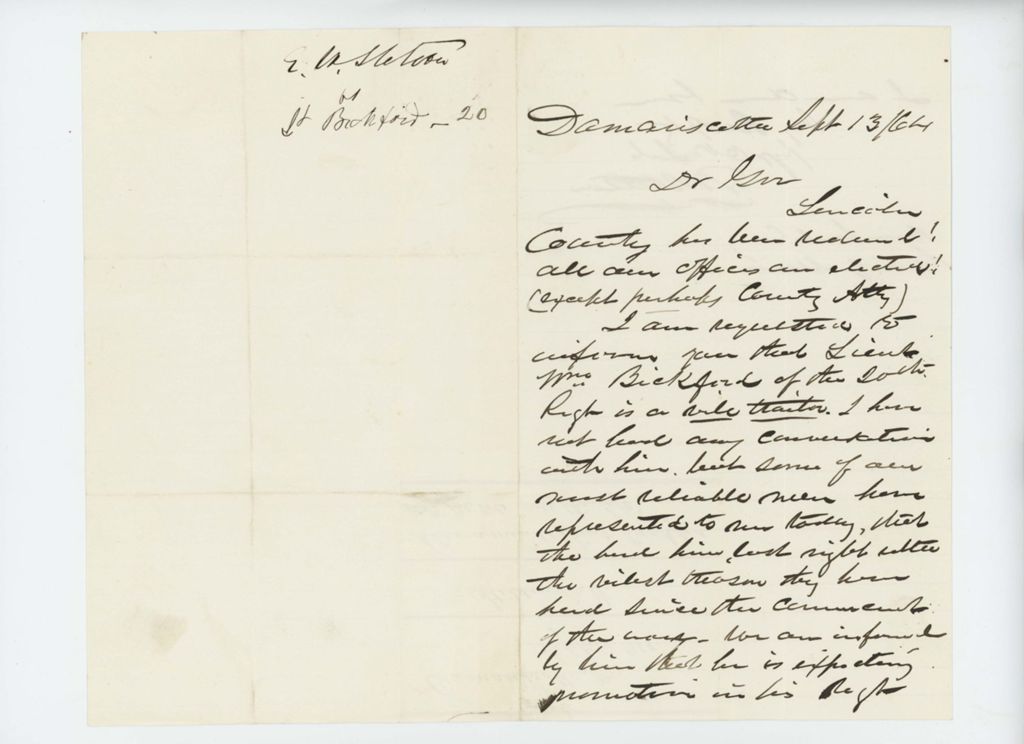 E. W. Stetson
of
Lt Bickford - 20
Damariscotta Sept 13/64
Dr Gov
Lincoln
County has been redeemed!
all our officers are elected!
(except perhaps County Atty)
I am requested to
inform you that Lieut
Wm Bickford of the 20th
Regt is a vile traitor. I have
not had any conversation
with him. but some of our
most reliable men have
represented to me today, that
the herd him last night utter
the vilest treason they have
herd since the commenct
of the war - We are informed
by him that he is expecting
promotion in his Regt